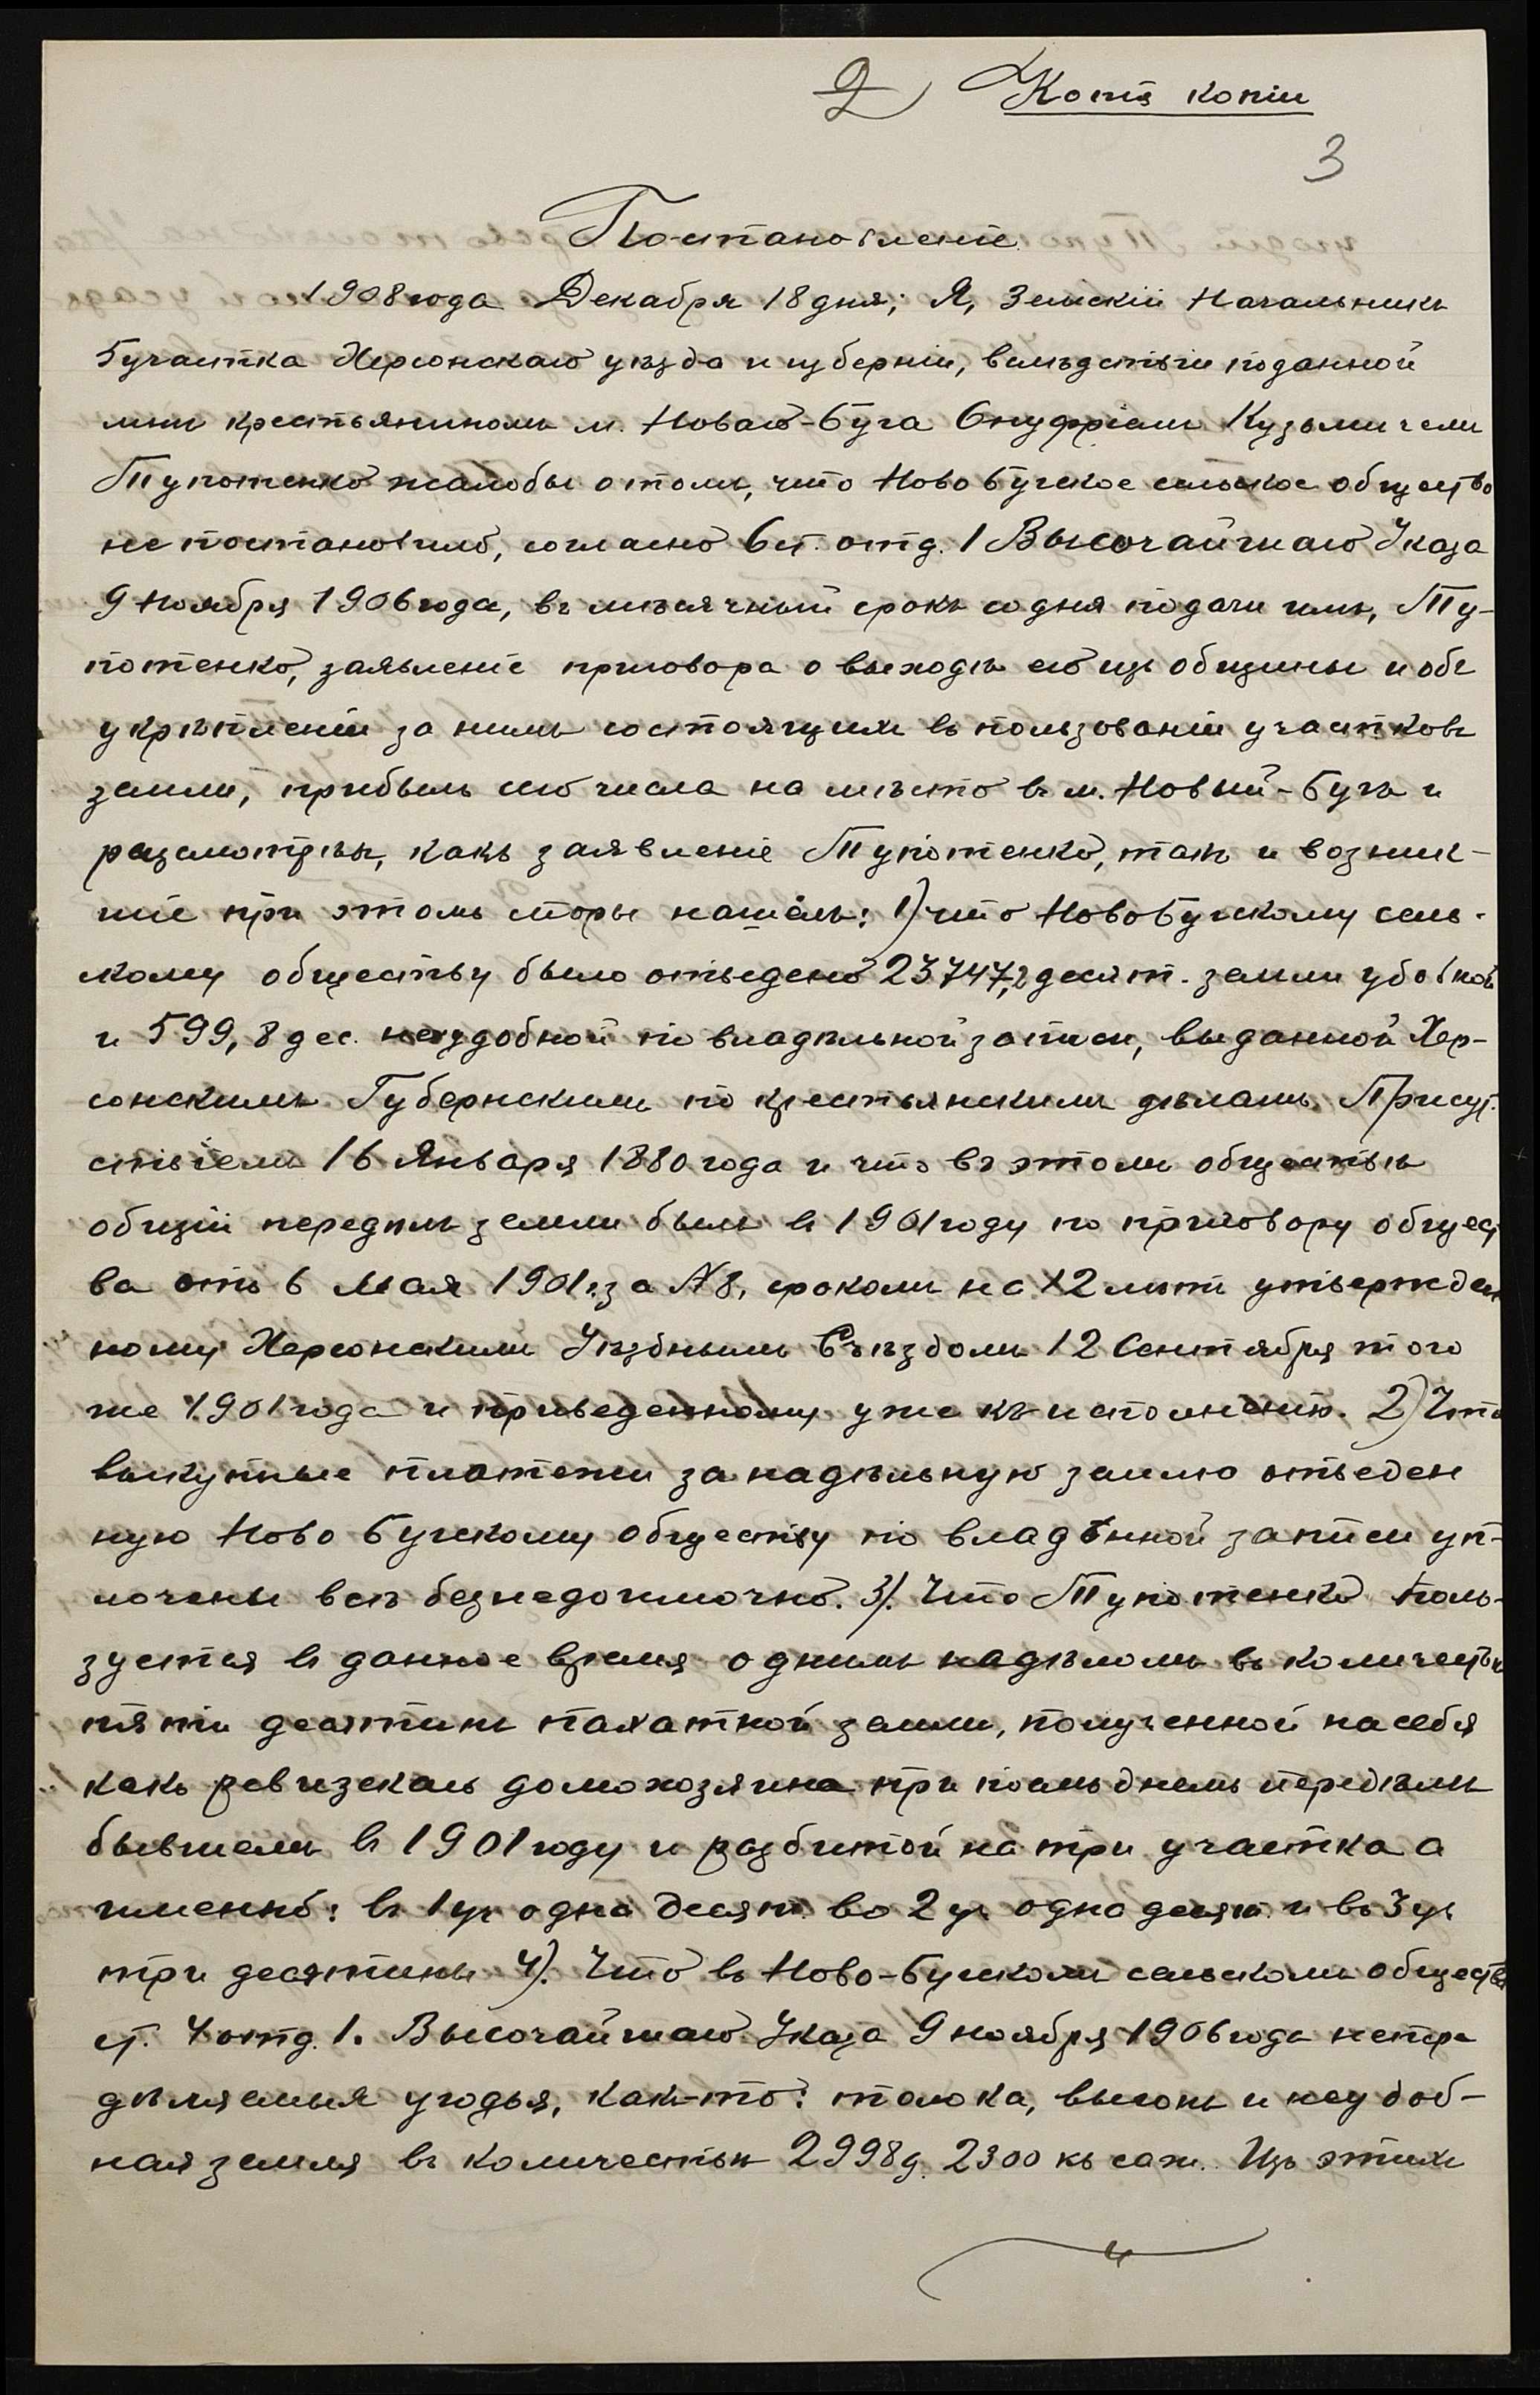 2) Копія копіи
3
Постановленіе.
1908 года Декабря 18 дня; Я, Земскій Начальникъ
5 участка Херсонскаго уѣзда и губерніи, вслѣдствіи поданной
мнѣ крестьяниномъ м. Новаго-Буга Онуфріемъ Кузьмичемъ
Тупотенко жалобы о томъ, что Ново Бугское сельское общество
не постановило, согласно 6 ст. отд. 1 Высочайшаго Указа
9 Ноября 1906 года, въ мѣсячный срокъ со дня подачи имъ, Ту-
потенко, заявленіе приговора о выходѣ его изъ общины и объ
укрѣпленіи за нимъ состоящихъ въ пользованіи участковъ
земли, прибылъ сего числа на мѣсто въ м. Новый-Бугъ и
разсмотрѣвъ, какъ заявленіе Тупотенко, такъ и возник-
шіе при этомъ споры нашелъ: 1) что Ново Бугскому сель-
скому обществу было отведено 23747,2 десят. земли удобной
и 599,8 дес. неудобной по владѣльной записи, выданной Хер-
сонскимъ Губернскимъ по крестьянскимъ дѣламъ Присут-
ствіемъ 16 Января 1880 года и что въ этомъ обществѣ
общій передѣлъ земли былъ въ 1901 году по приговору общест
ва отъ 6 Мая 1901 г. за № 8, срокомъ на 12 лѣтъ утвержден
ному Херсонскимъ Уѣзднымъ Съѣздомъ 12 Сентября того
же 1901 года и приведенному уже къ исполненію. 2) Что
выкупные платежи за надѣльную землю отведен
ную Ново Бугскому обществу по владѣнной записи уп-
лочены всѣ безнедоимочно. 3). Что Тупотенко поль-
зуется въ данное время однимъ надѣломъ въ количествѣ
пяти десятинъ пахатной земли, полученной на себя
какъ домохозяина при послѣднемъ передѣлѣ
бывшемъ въ 1901 году и разбитой на три участка а
именно: въ 1 уч. одна десят. во 2 уч. одна десят. и въ 3 уч.
три десятины 4). Что въ Ново-Бугскомъ сельскомъ обществѣ
ст. 4 отд. 1. Высочайшаго Указа 9 ноября 1906 года непере
дѣляемыя угодья, какъ-то: толока, выгонъ и неудоб-
ная земля въ количествѣ 2998 д. 2300 кв саж. Изъ этихъ